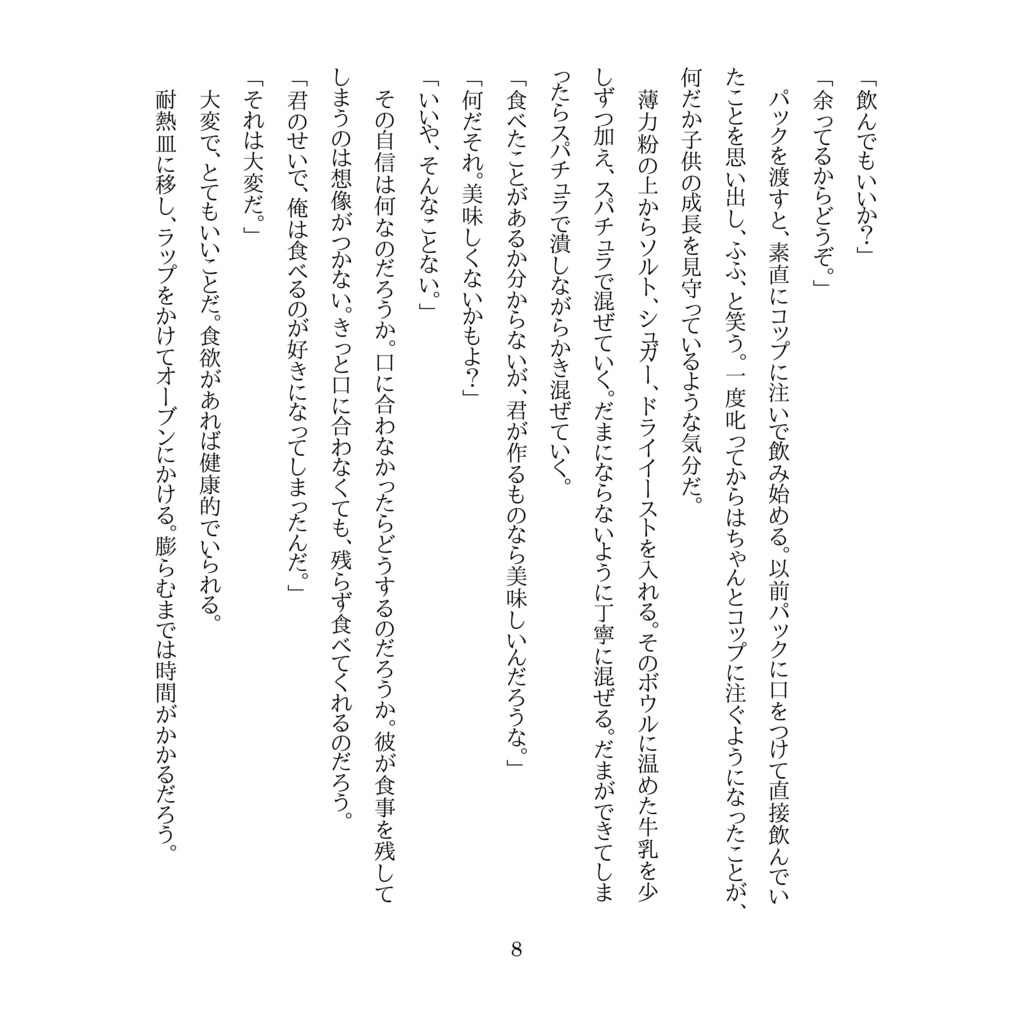 「飲んでもいいか？」
「余ってるからどうぞ。」
パックを渡すと、素直にコップに注いで飲み始める。以前パックに口をつけて直接飲んでい
たことを思い出し、ふふ、と笑う。一度叱ってからはちゃんとコップに注ぐようになったことが、
何だか子供の成長を見守っているような気分だ。
薄力粉の上からソルト、シュガー、ドライイーストを入れる。そのボウルに温めた牛乳を少
しずつ加え、スパチュラで混ぜていく。だまにならないように丁寧に混ぜる。だまができてしま
ったらスパチュラで潰しながらかき混ぜていく。
「食べたことがあるか分からないが、君が作るものなら美味しいんだろうな。」
「何だそれ。美味しくないかもよ？」
「いいや、そんなことない。」
その自信は何なのだろうか。口に合わなかったらどうするのだろうか。彼が食事を残して
しまうのは想像がつかない。きっと口に合わなくても、残らず食べてくれるのだろう。
「君のせいで、俺は食べるのが好きになってしまったんだ。」
「それは大変だ。」
大変で、とてもいいことだ。食欲があれば健康的でいられる。
耐熱皿に移し、ラップをかけてオーブンにかける。膨らむまでは時間がかかるだろう。
8